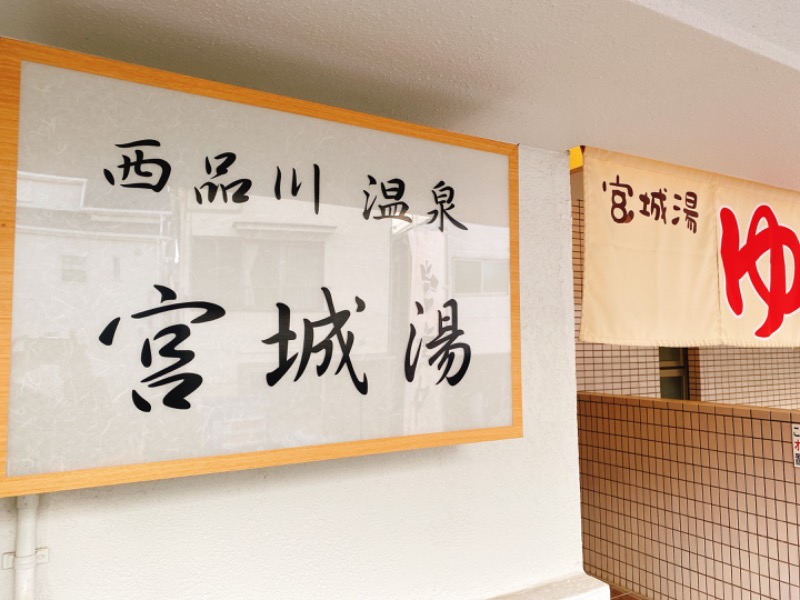 西品川 温泉
宮城湯
宮城湯
ゆ